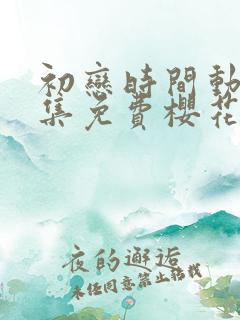 初戀時間動
集免費櫻花
夜的邂逅
未经同意禁止转载